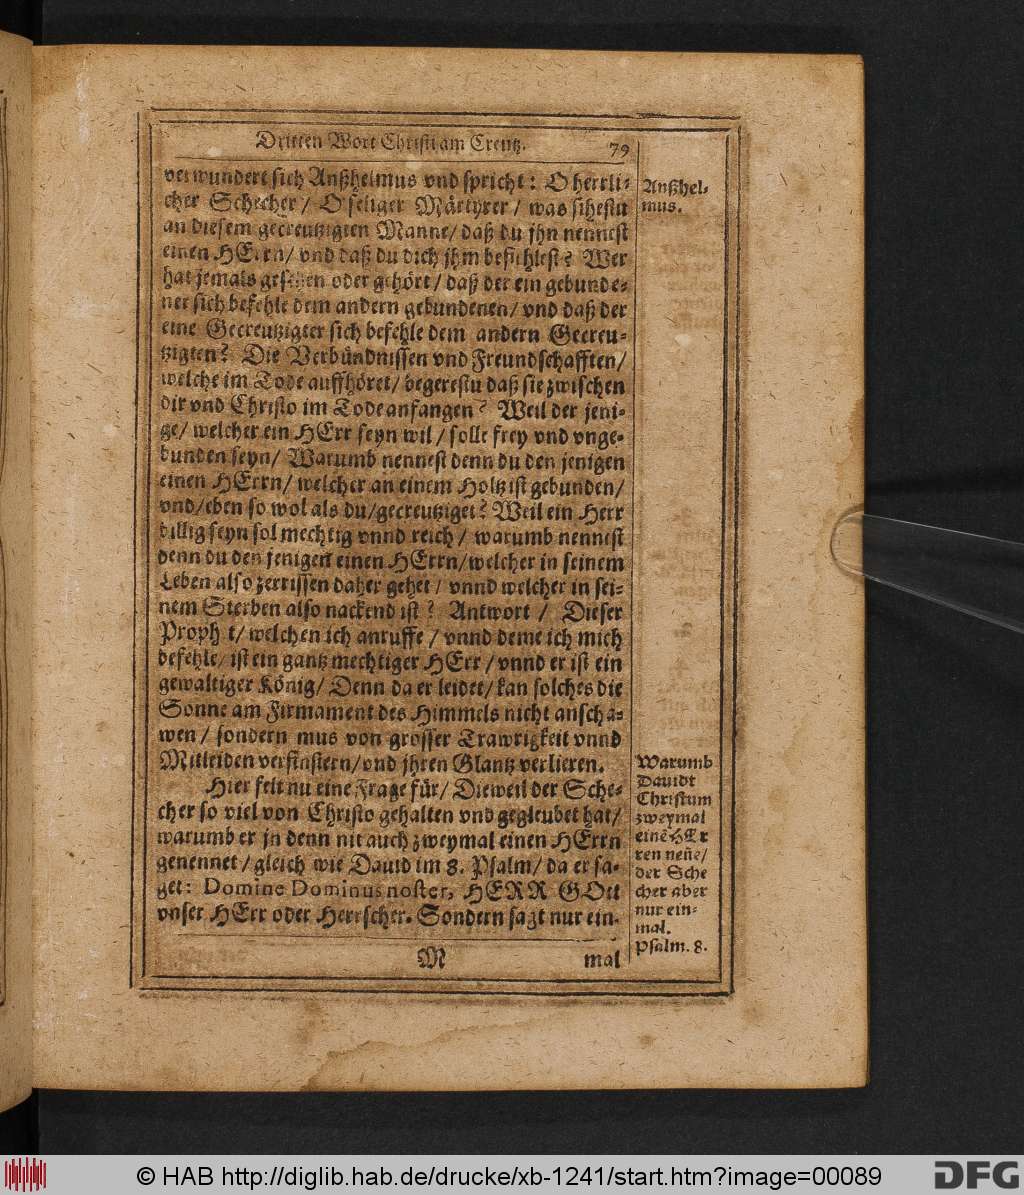 Dritten Wort Christi am Creutz. 79
verwundert sich Anßhelmus vnd spricht: O herrli-
cher Schecher / O seliger Märtyrer / was sihestu
an diesem gecreutzigten Manne / daß du jhn nennest
einen HErrn / vnd daß du dich jhm befihlest? Wer
hat jemals gesehen oder gehört / daß der ein gebunde-
ner sich befehle dem andern gebundenen / vnd daß der
eine Gecreutzigter sich befehle dem andern Gecreu-
tzigten? Die Verbündnissen vnd Freundschafften /
welche im Tode auffhöret / begerestu daß sie zwischen
dir vnd Christo im Tode anfangen? Weil der jeni-
ge / welcher ein HErr seyn wil / solle frey vnd vnge-
bunden seyn / Warumb nennest denn du den jenigen
einen HErrn / welcher an einem Holtz ist gebunden /
vnd / eben so wol als du / gecreutziget? Weil ein Herr
billig seyn sol mechtig vnnd reich / warumb nennest
denn du den jenigen einen HErrn / welcher in seinem
Leben also zerrissen daher gehet / vnnd welcher in sei-
nem Sterben also nackend ist? Antwort / Dieser
Proph t / welchen ich anruffe / vnnd deme ich mich
befehle / ist ein gantz mechtiger HErr / vnnd er ist ein
gewaltiger König / Denn da er leidet / kan solches die
Sonne am Firmament des Himmels nicht anscha-
wen / sondern mus von grosser Trawrigkeit vnnd
Mitleiden verfinstern / vnd jhren Glantz verlieren.
Hier felt nu eine Frage für / Dieweil der Sche-
cher so viel von Christo gehalten vnd gegleubet hat /
warumb er jn denn nit auch zweymal einen HErrn
genennet / gleich wie Dauid im 8. Psalm / da er sa-
get: Domine Dominus noster, HERR GOtt
vnser HErr oder Herrscher. Sondern sagt nur ein-
M mal
Anßhel-
mus.
Warumb
Dauidt
Christum
zweymal
einẽ HEr
ren neñe /
der Sche
cher aber
nur ein-
mal.
Psalm. 8.
© HAB http://diglib.hab.de/drucke/xb-1241/start.htm?image=00089
DFG